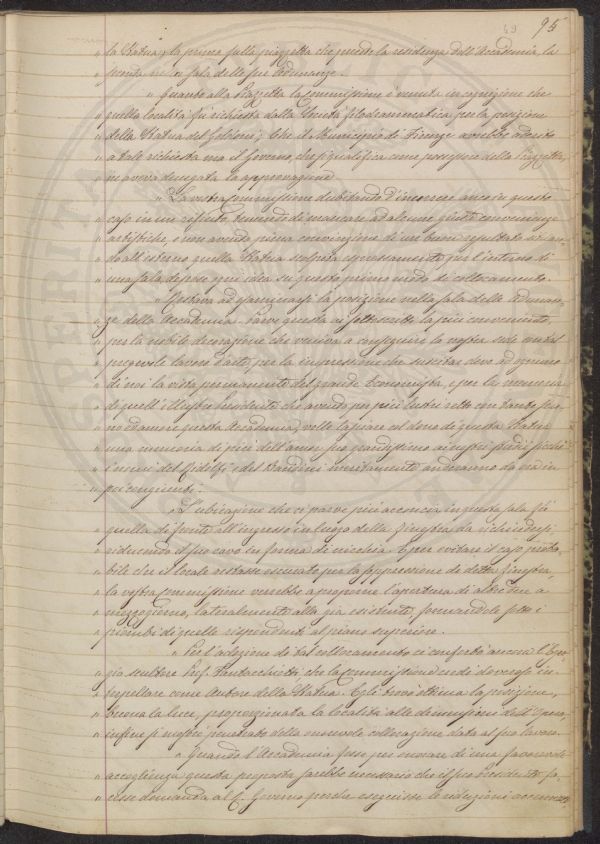 49 95
" la Statua; la prima sulla piazzetta che precede la residenza dell'Accademia, la
" seconda nella sala delle sue Adunanze.
" " Quanto alla Piazzetta la Commissione è venuta in cognizione che
" quella località fu richiesta dalla Società filodrammatica per la posizione
" della Statua del Goldoni; che il Municipio di Firenze avrebbe aderito
" a tale richiesta ma il Governo, che figurava come possessore della Piazzetta,
" ne aveva denegata la approvazione.
" " La vostra Commissione dubitando d'incorrere anco in questo
" caso in un rifiuto, temendo di mancare ad alcune giuste convenienze
" artistiche, e non avendo piena convinzione di un buon resultato
" do all'esterno quella Statua scolpita espressamente per l'interno di
" una sala, depose ogni idea su questo primo modo di collocamento.
" " Restava ad esaminarsi la posizione nella sala delle Adunan-
" ze della Accademia. Parve questa ai sottoscritti la più conveniente
" per la nobile decorazione che veniva a conseguire la vostra sede
" pregevole lavoro d'arte, per la impressione che susciterà deve ad ognuno
" di noi la vista permanente del grande Economista, e per la memoria
" di quell'illustre Presidente che avendo per più lustri retto con tanto
" questa Accademia, volle lasciare col dono di questa Statua
" una memoria di più dell'amor suo grandissimo ai nostri studi sicchè
" i nomi del Ridolfi e del Bandini meritamente anderanno da ora in
" poi congiunti.
" " L'ubicazione che ci parve più acconcia in questa sala fu
" quella di fronte all'ingresso in luogo della finestra da richiudersi
" riducendo il suo cavo in forma di nicchia. E per evitare il caso proba-
" bile che il locale restasse oscurato per la soppressione di detta finestra,
" la vostra Commissione verrebbe a proporre l'apertura di altre due a
" mezzogiorno, lateralmente alla già esistente, formandole sotto i
" piombi di quelle rispondenti al piano superiore.
" " Per l'adozione di tal collocamento ci confortò ancora l'Egre-
" gio scultore Prof. Fantacchiotti che la Commissione credè doveroso in-
" terpellare come Autore della Statua. Egli trovò ottima la posizione,
" buona la luce, proporzionata la località alle dimensioni dell'Opera,
" infine si mostrò penetrato della onorevole collocazione data al suo lavoro.
" " Quando l'Accademia fosse per onorare di una favorevole
" accoglienza questa proposta sarebbe necessario che il suo Presidente fa-
" cesse domanda al R. Governo perchè eseguisse le riduzioni accennate